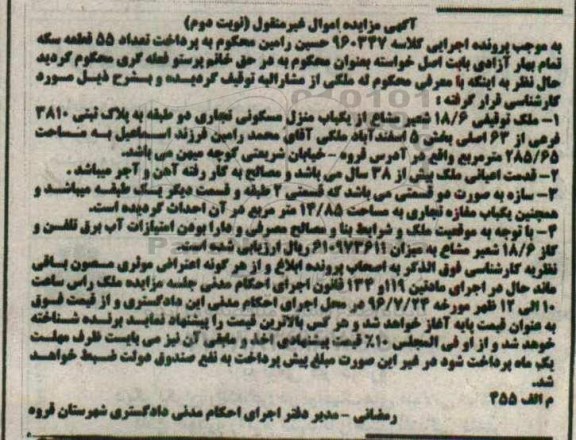 آگهی مزایده اموال غیرمنقول (نوبت دوم)
به موجب پرونده اجرایی کلاسه ۹۶۰۳۴۷ حسین رامین محکوم به پرداخت تعداد ۵۵ قطعه سکه
تمام بهار آزادی بابت اصل خواسته بعنوان محکوم به در حق خانم پرستو قمله گری محکوم گردید
حال نظر به اینکه با معرفی محکوم له ملکی از مشارالیه توقیف گردیده و بشرح ذیل مورد
کارشناسی قرار گرفته :
۱- ملک توقیفی ۱۸/۶ شعیر مشاع از یکباب منزل مسکونی تجاری دو طبقه به پلاک ثبتی ۳۸۱۰
فرعی از ۶۳ اصلی بخش ۵ اسفندآباد ملکی آقای محمد رامین فرزند اسماعیل به مساحت
۲۸۵/۶۵ مترمربع واقع در آدرس قروه - خیابان شریعتی کوچه میهن می باشد.
۲- قدمت اعیانی ملک بیش از ۳۸ سال می باشد و مصالح به کار رفته آهن و آجر میباشد .
۳- سازه به صورت دو قسمتی می باشد که قسمتی ۲ طبقه و قسمت دیگر یک طبقه میباشد و
همچنین یکباب مغازه تجاری به مساحت ۱۴/۸۵ متر مربع در آن احداث گردیده است.
۴- با توجه به موقعیت ملک و شرایط بنا و مصالح مصرفی و دارا بودن امتیازات آب برق تلفن و
گاز ۱۸/۶ شعیر مشاع به میزان ۶۱۰۹۷۳۶۱۱ ریال ارزیابی شده است.
نظریه کارشناسی فوق الذکر به اصحاب پرونده ابلاغ و از هر گونه اعتراض موثری مصون باقی
مانده حال در اجرای مادتین ۱۱۹و ۱۳۴ قانون اجرای احکام مدنی جلسه مزایده ملک راس ساعت
۱۰ الی ۱۲ ظهر مورخه ۹۶/۷/۲۴ در محل اجرای احکام مدنی این دادگستری و از قیمت فوق
به عنوان قیمت پایه آغاز خواهد شد و هر کس بالاترین قیمت را پیشنهاد نماید برنده شناخته
خوهد شد و از او فی المجلس ۱۰٪ قیمت پیشنهادی اخذ و مابقی آن نیز می بایست ظرف مهلت
یکم ماه پرداخت شود در غیر این صورت مبلغ پیش پرداخت به نفع صندوق دولت ضبط خواهد
شد.
م الف ۴۵۵
رمضانی - مدیر دفتر اجرای احکام مدنی دادگستری شهرستان قروه